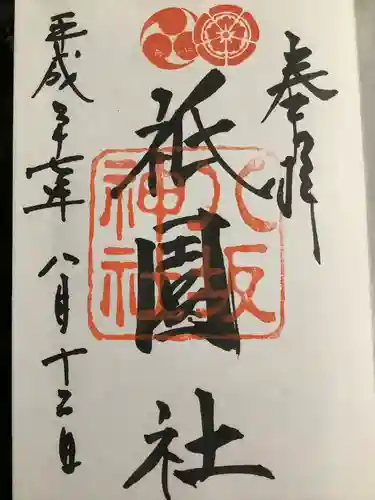 奉拝
祇園社
八坂神社
平成二十六年八月十二日